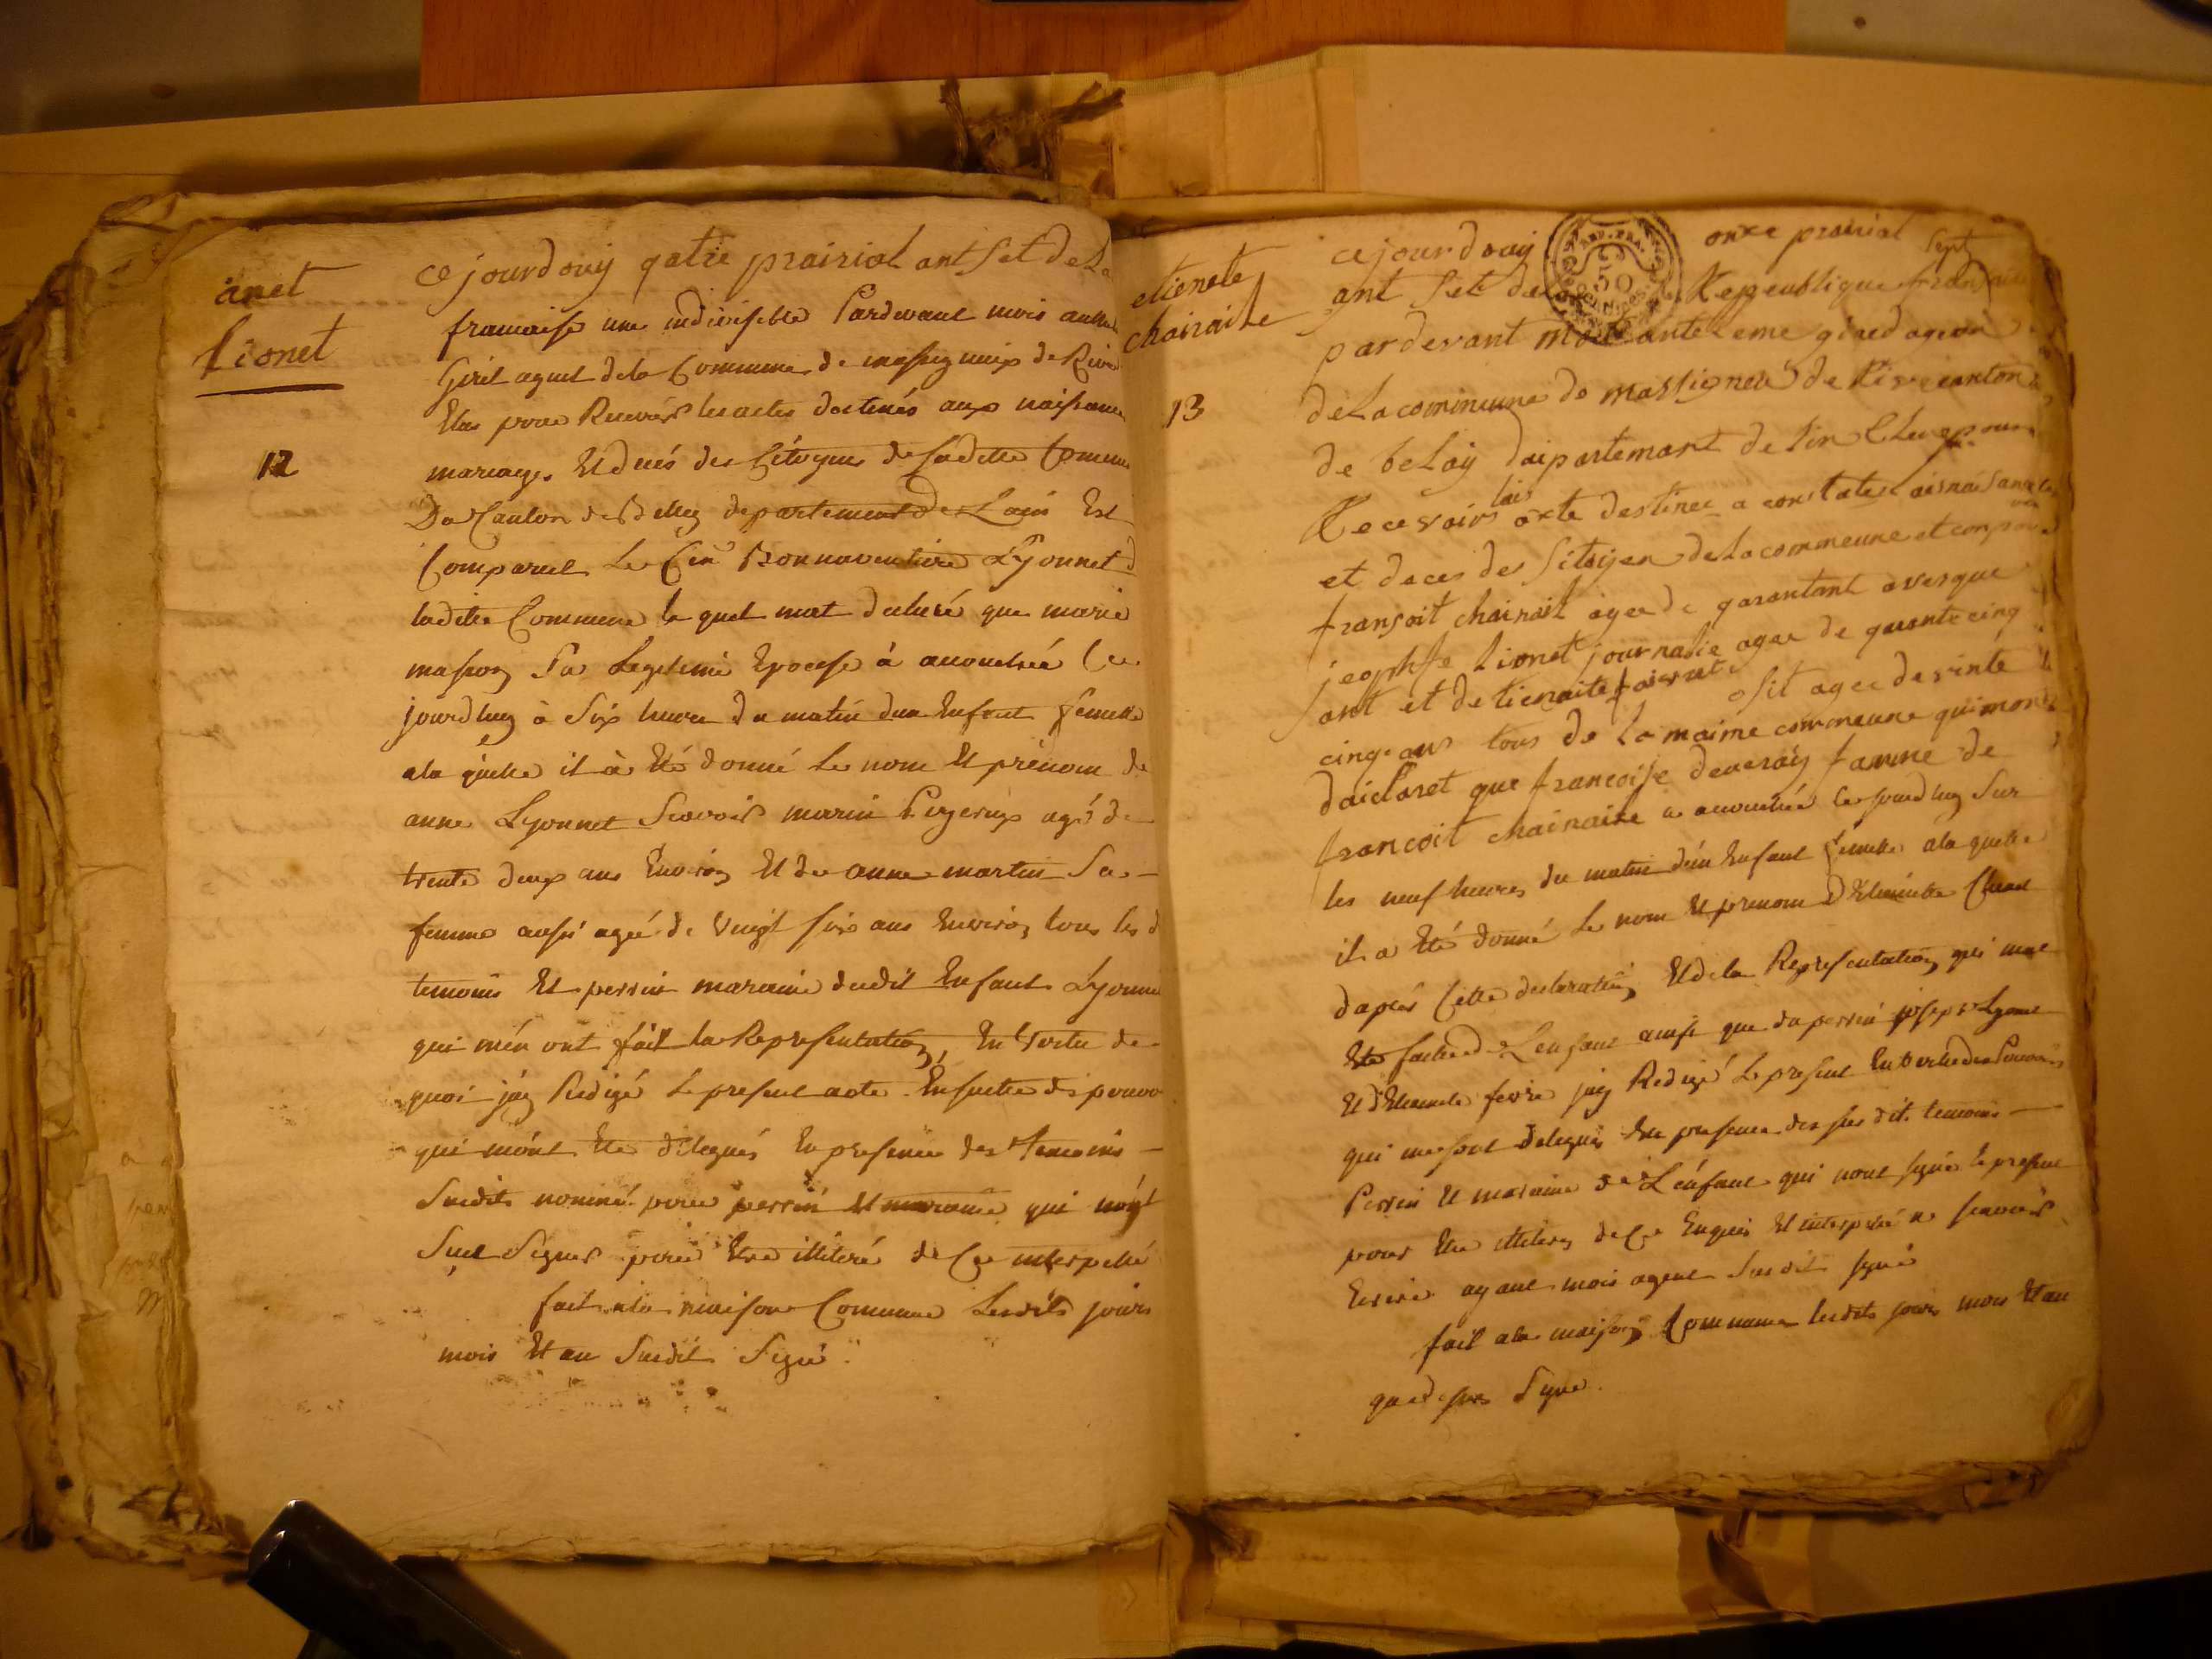 anet
Lionet
12
ce jourdouy qatre prairial ant set de La
francaise une indivisible Pardevant mois anthel
Girel agent dela Commune de massigneux de Rive
Elus pour Recevoir les actes destinés aux naissances
mariages Et decés des Citoyens de Ladette Commune
Du Canton de Belley departement de Lain Est
Comparut Le Cen Bonnaventure Lyonnet d
ladite Commune le quel mat declaré que marie
masson Sa Legitime Epouse à accouchée Ce
jourdhuy à Six heures du matin dun Enfant femelle
ala quelle il à Eté donné Le nom Et prénom de
anne Lyonnet Scavoir marin Pugeriys agé de
trente deux ans Environ Et de anne martin Sa
femme aussi agée de Vingt six ans Environ tous les d
temoins Et perrin maraine dudit Enfant Lyonnet
qui m'en ont fait la Representation, En Vertu de
quoi jay Redigé Le present acte Ensuitte des pouvo
qui m'ont Eté délegués En presence des temoins
Susdits nommé pour perrin Et maraine qui n'ont
Sut Signer pour Etre illiteré de Ce interpellé
fait ala maison Commune Lesdits jours
mois Et an Susdit Signé
etienete
chairaite
13
ce jourdouy onze prairial
REP. FRA.
50
ant Set de La Reppeublique fransaise sept
par devant moi anteleme girel ageon
de La commeune de massigneu de Rive canton
de belay daipartemant de lin Elue pour
Recevoir lais axte destinee a constater ais naisance
et deces des Sitoyen de La commeune et conparu
fransoit chairait agee de garantant avesque
jeophse Lionet journalie agee de garante cinq
ant et de tienaite faivret osit agee de vinte
cinq ans tous de La maime commeune qui mont
daiclaret que francoise deveray famme de
francoit chairaite a accouchée Ce jourdhuy Sur
les neuf heures du matin d'un Enfant femelle ala quelle
il a Eté donné Le nom Et prenom d'Etiennette Charet
d'aprés Cette declaration Et de la Representation qui mat
Eté faitte de L'enfant ainsi que du perrin joseph Lyonet
Et d'Etiennete fevre jay Redigé Le present En Vertu des Pouvoirs
qui me sont delegués En presence des susdit temoins
Perrin Et maraine de L'enfant qui n'ont signés le present
pour Etre illiteres de Ce Enquis Et interpellé ne scavoir
Ecrire ayant mois agent Susdit signé
fait ala maison Commune lesdits jours mois Et an
que dessus Signé